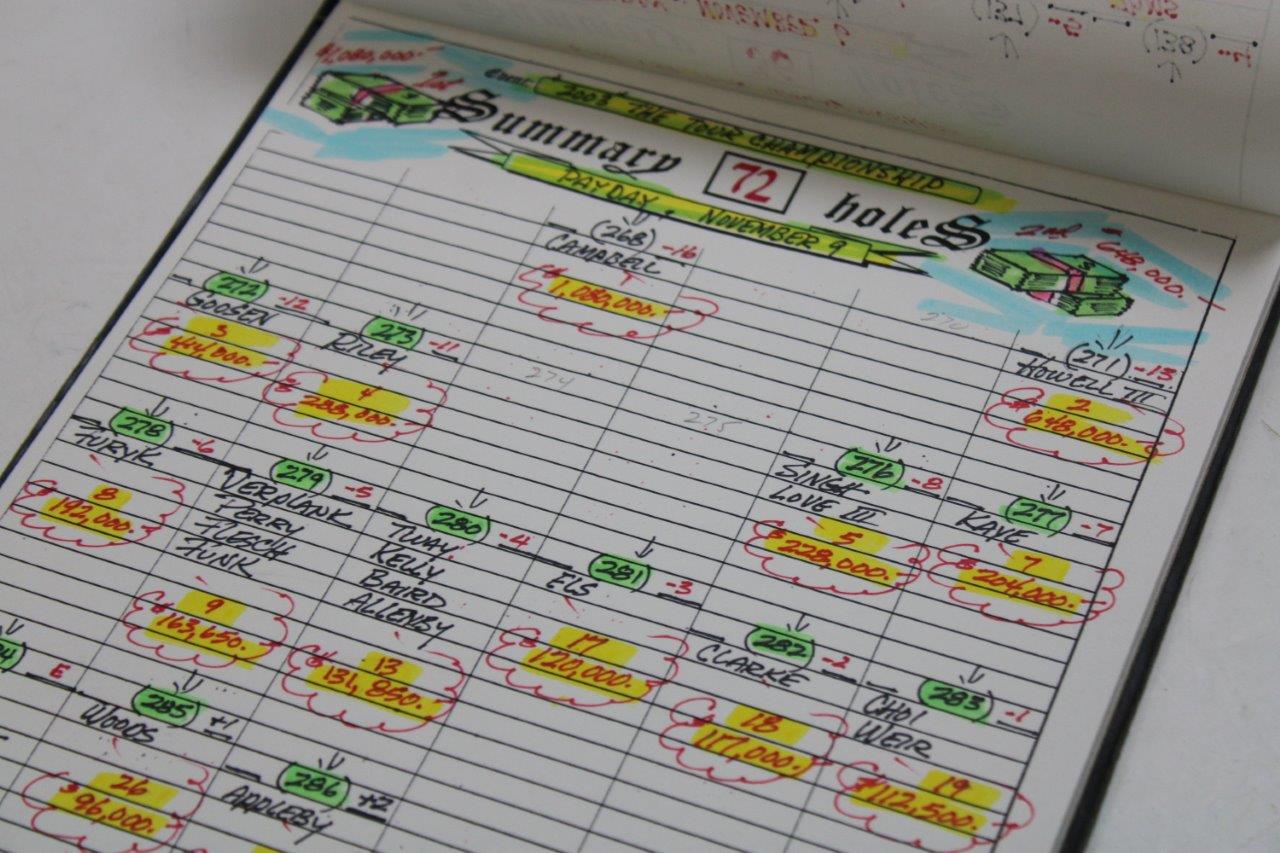 $1,080,000.-
1st
Event: 2003 THE TOUR CHAMPIONSHIP
Summary 72 holeS
PAYDAY. NOVEMBER 9
2nd 648,000.-
(268) -16
CAMPBELL
1,080,000.-
270
(271) -13
HOWELL III
2
648,000.-
272 -12
GOOSEN
3
414,000.-
273 -11
RILEY
4
288,000.-
274
275
276 -8
SINGH
LOVE III
5
228,000.-
277 -7
KAYE
7
204,000.-
278 -6
FURYK
8
192,000.-
279 -5
VERPLANK
PERRY
FLESCH
FUNK
9
163,650.-
280 -4
TWAY
KELLY
BAIRD
ALLENBY
13
131,850.-
281 -3
ELS
17
120,000.-
282 -2
CLARKE
18
117,000.-
283 -1
CHOI
WEIR
19
112,500.-
E
285 +1
WOODS
26
$96,000.-
286 +2
APPLEBY